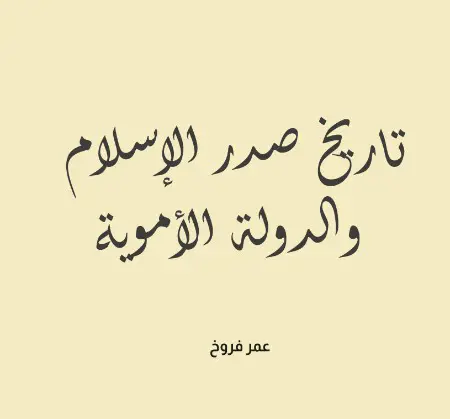 تاريخ صدر الإسلام
والدولة الأموية
عمر فروخ